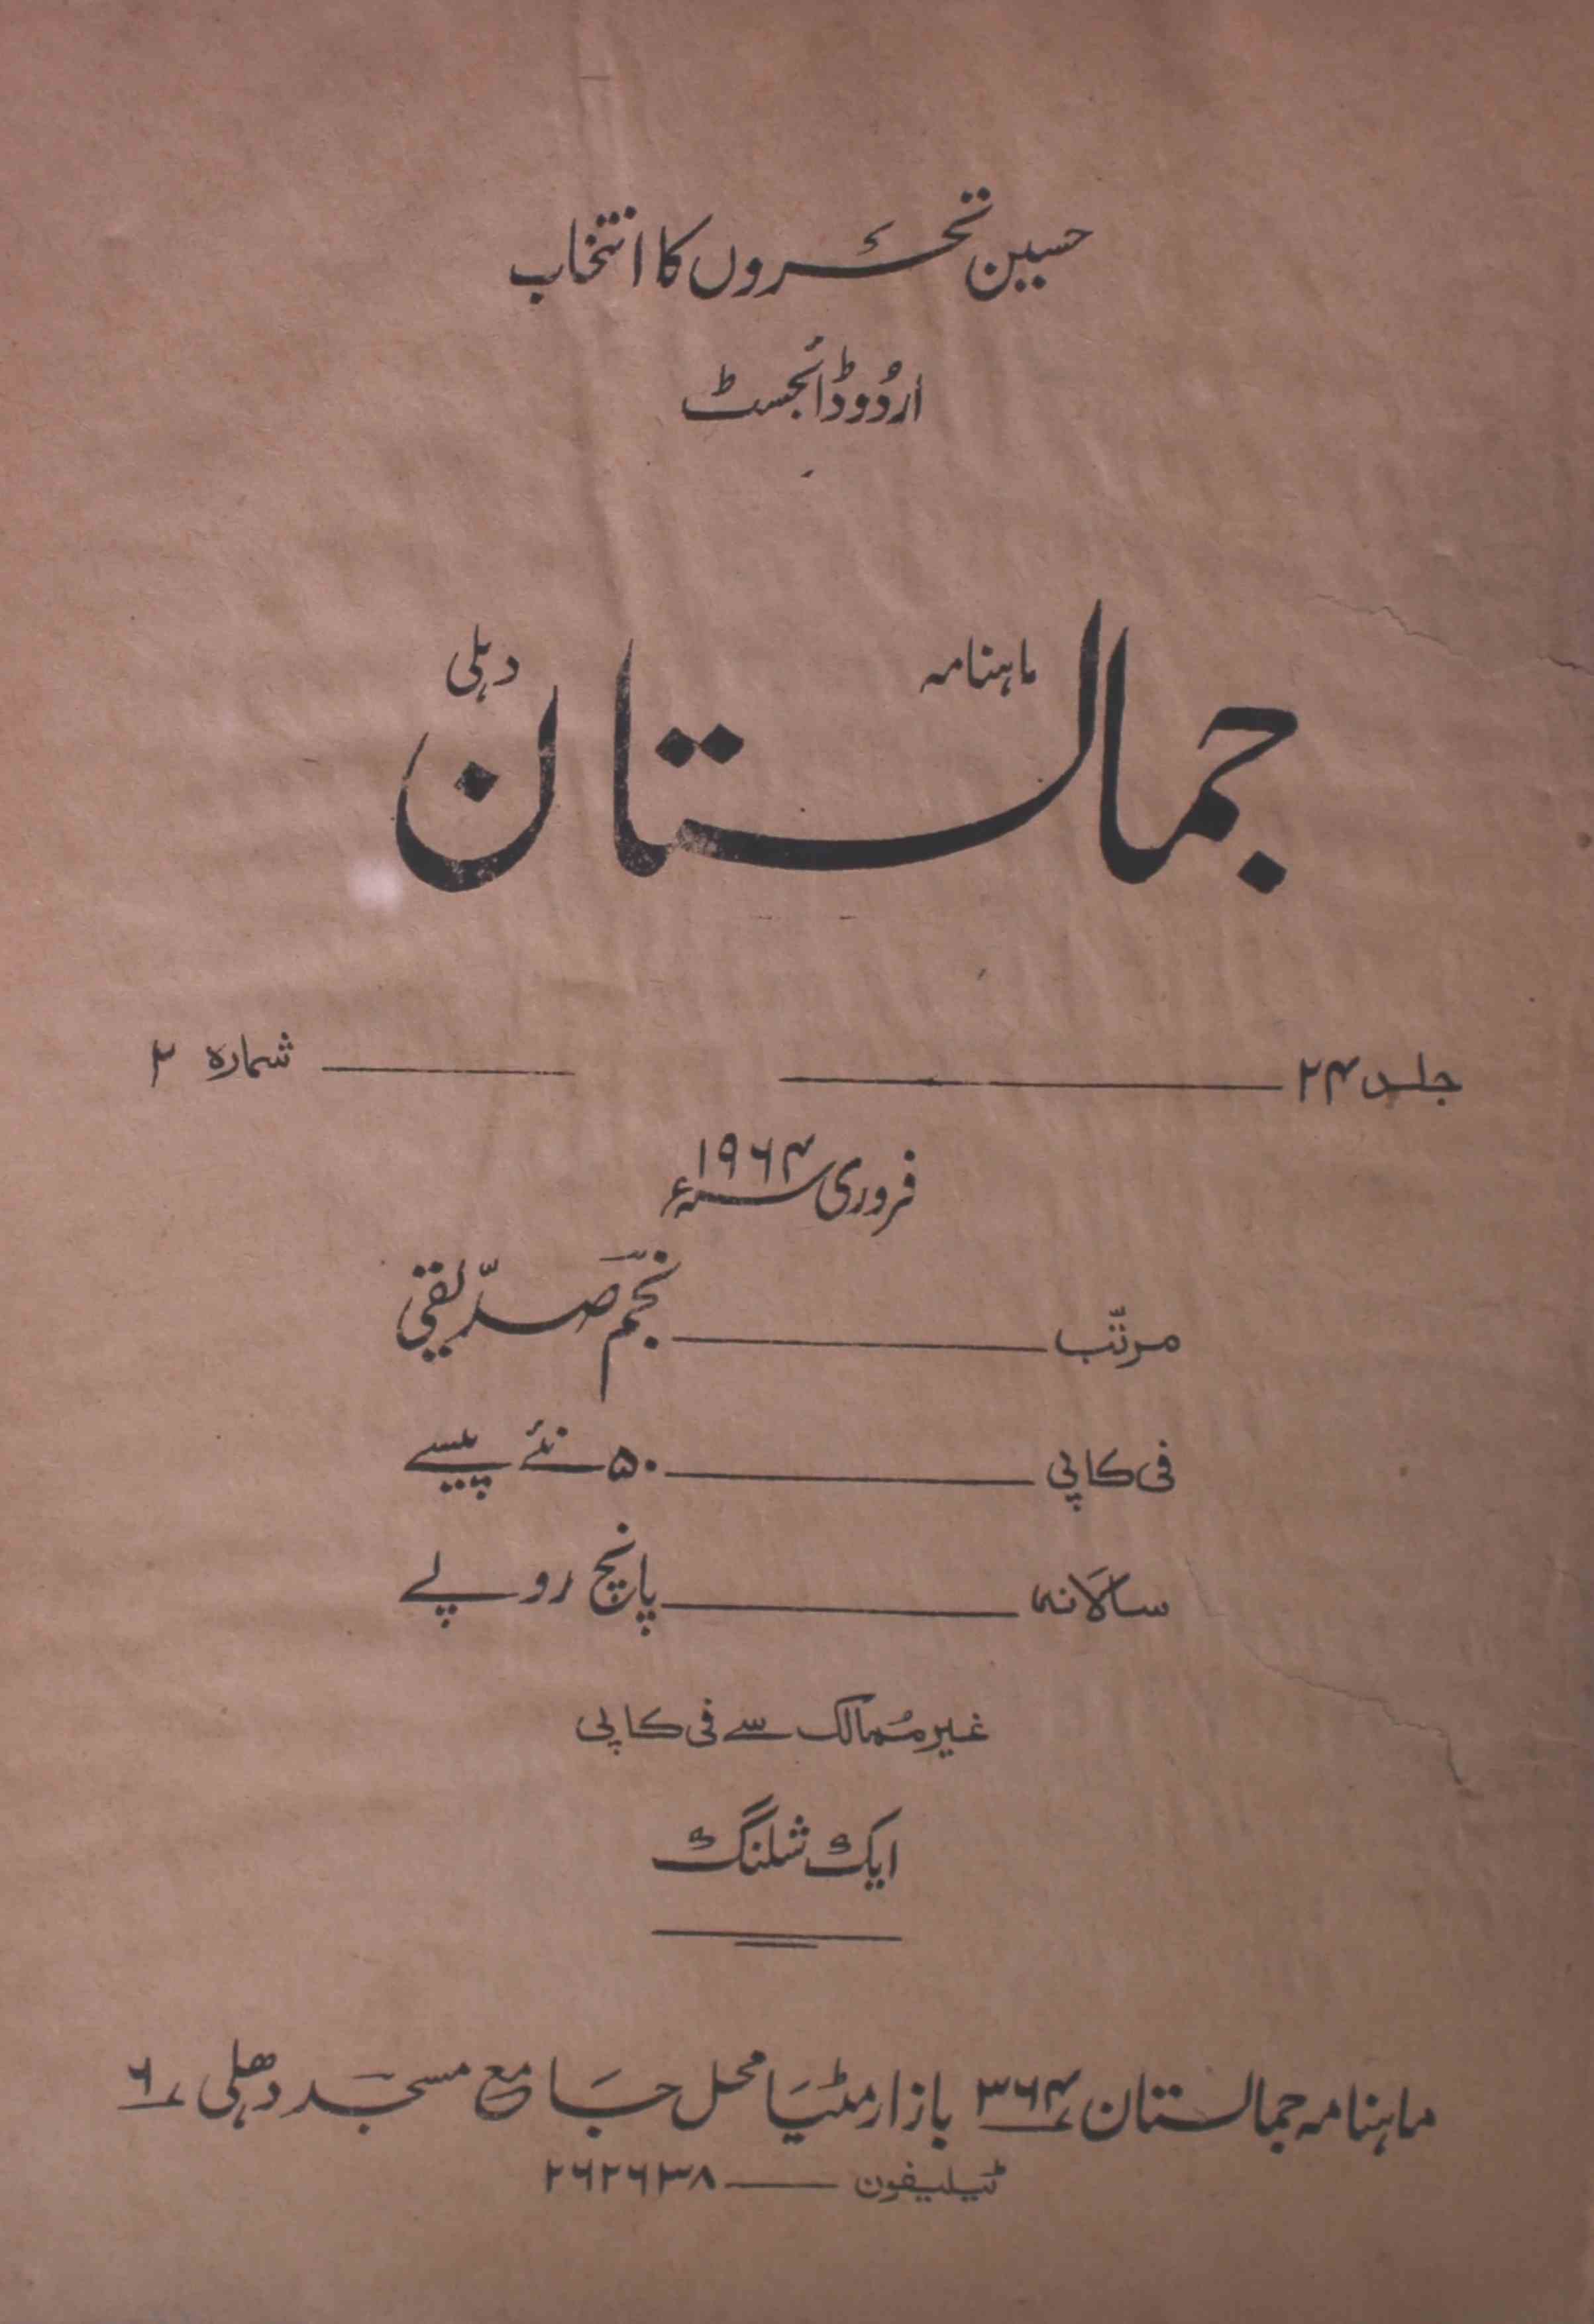 حسین تحریروں کا انتخاب
اُردو ڈائجسٹ
ماہنامہ جمالستان دہلی
جلد ۲۴ ——— شمارہ ۲
فروری ۱۹۶۴ء
مرتّب ——— نجم صدّیقی
فی کاپی ——— ۵۰ نئے پیسے
سالانہ ——— پانچ روپے
غیر مُمالک سے فی کاپی
ایک شلنگ
ماہنامہ جمالستان ۳۶۴ بازار مٹیا محل جامع مسجد دهلی ۶
ٹیلیفون ——— ۲۶۲۶۳۸